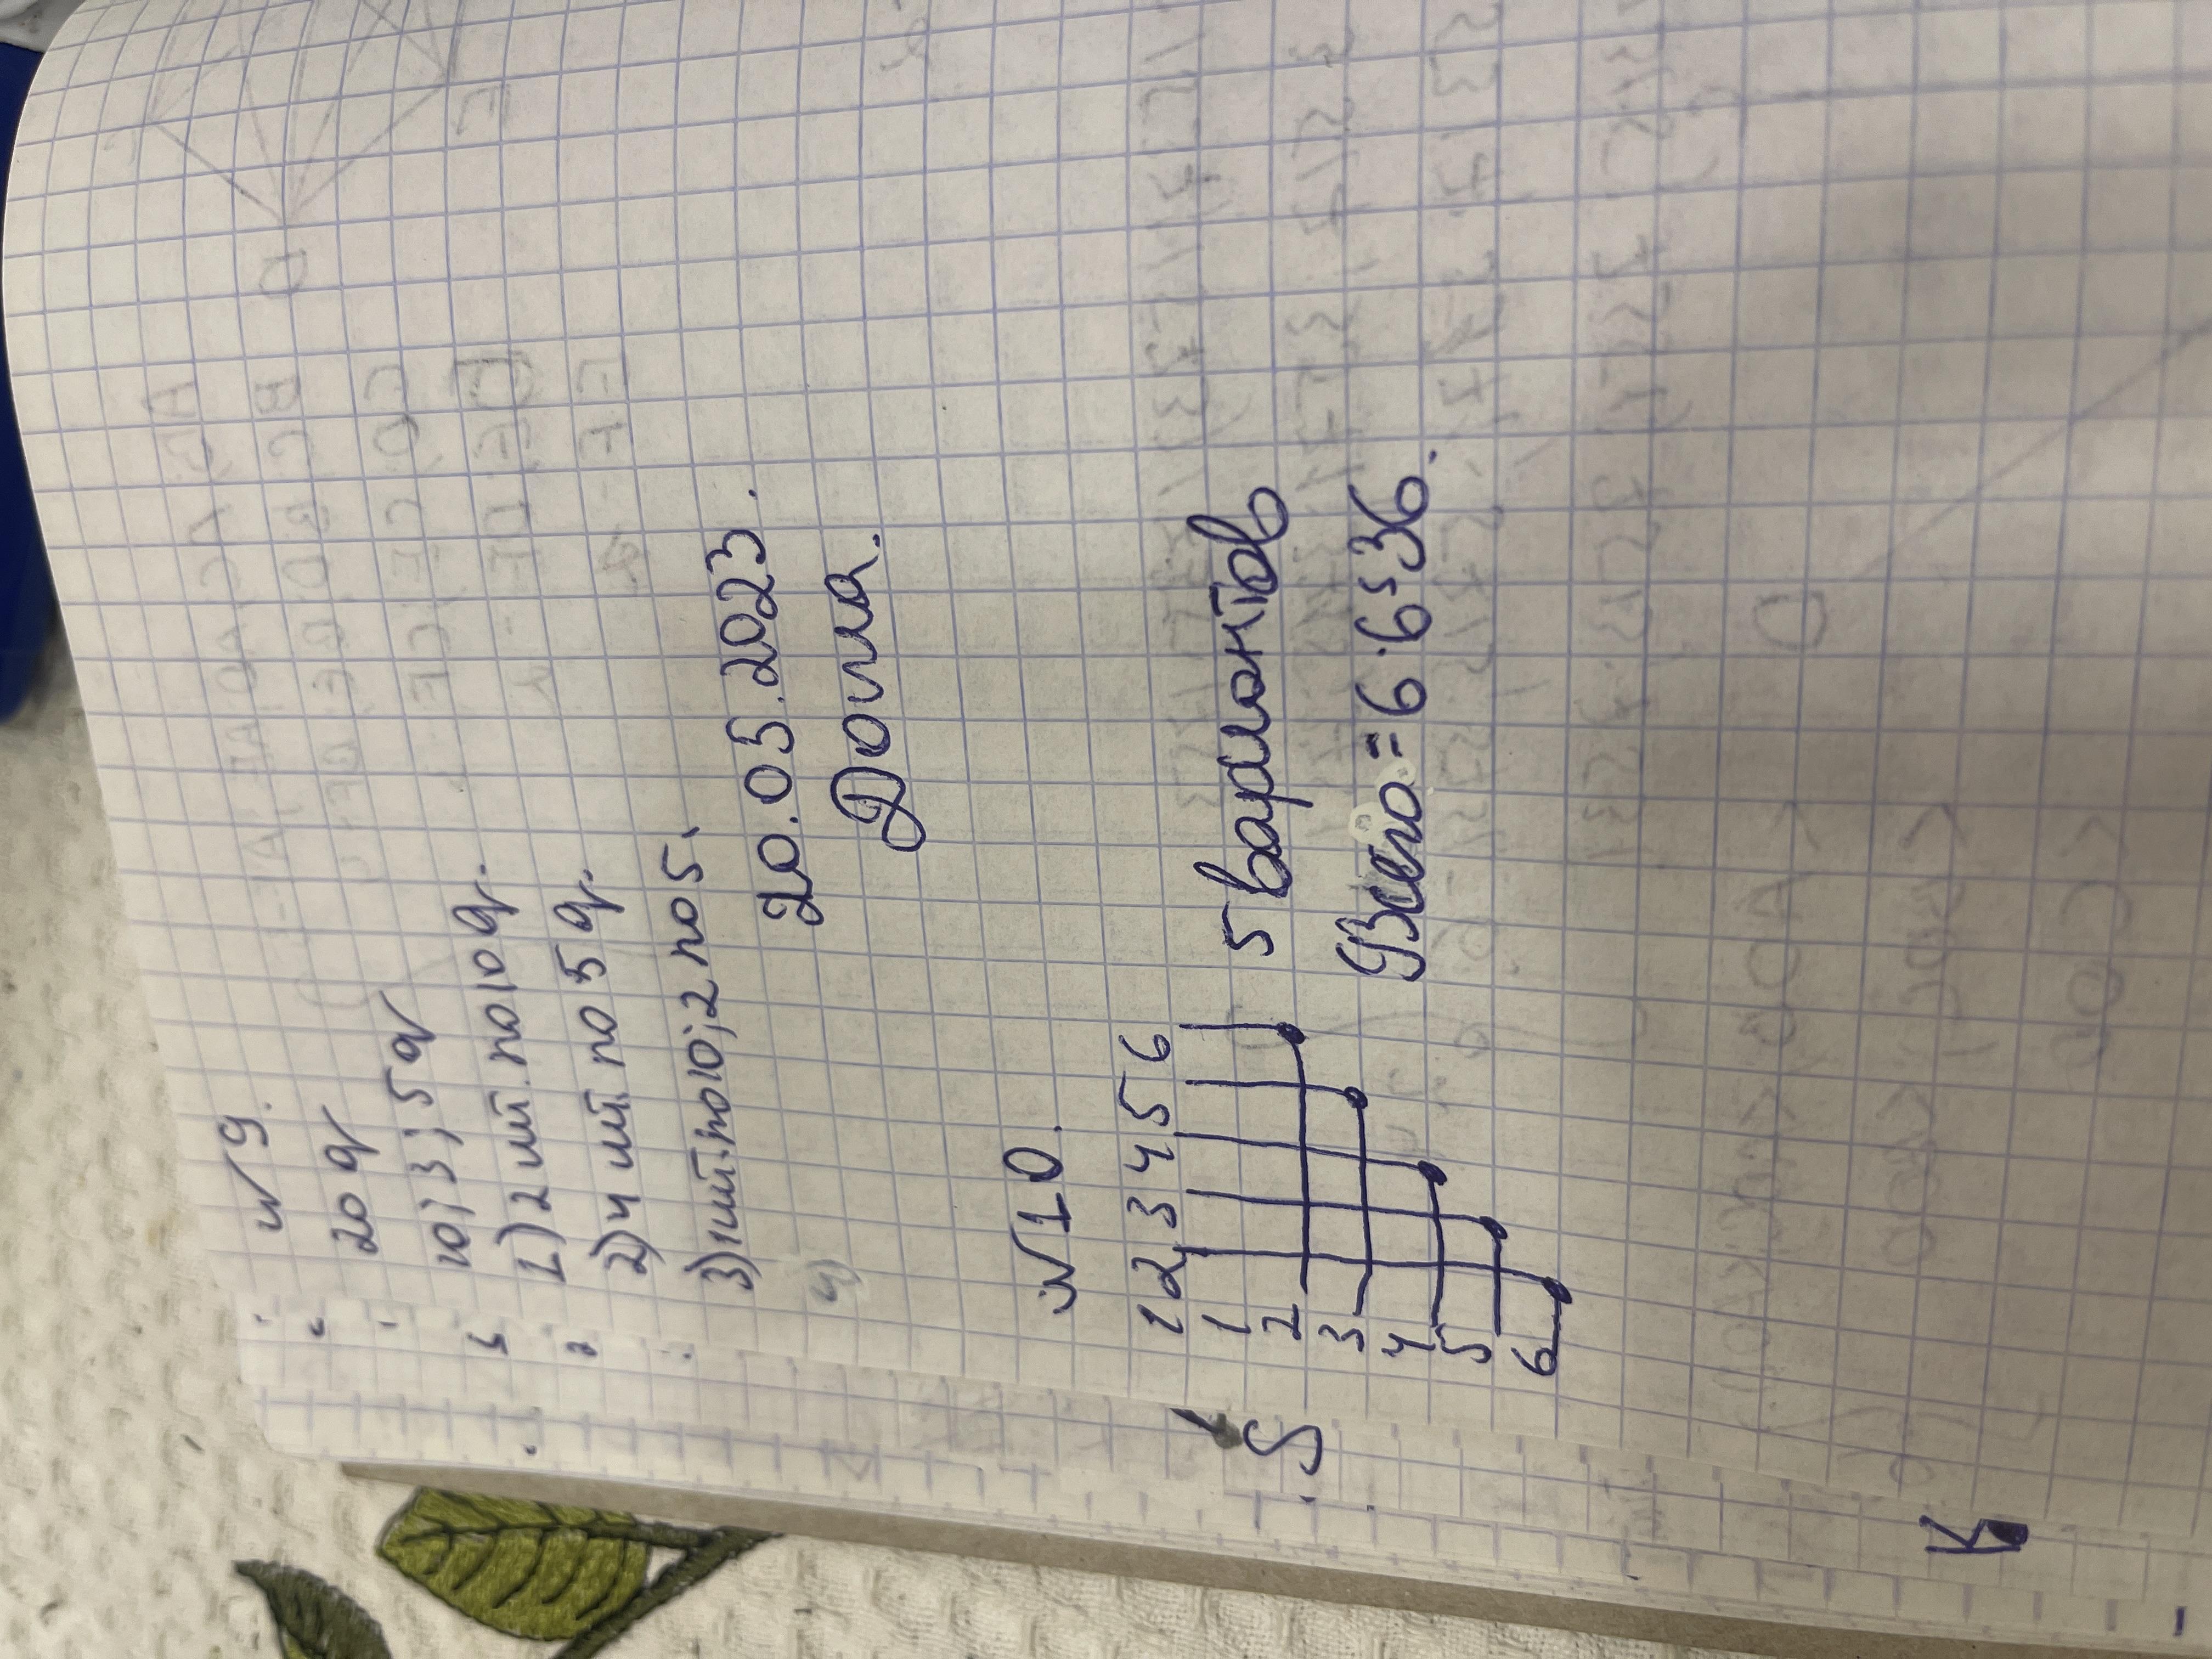 № 9.
20 д
10; 3; 5 д
1) 2 шт. по 10 д.
2) 4 шт. по 5 д.
3) 1 шт. по 10; 2 по 5.
20.05.2023.
Дома.
№10.
1 2 3 4 5 6
1
2
3
4
5
6
5 вариантов
Всего = 6·6=36.